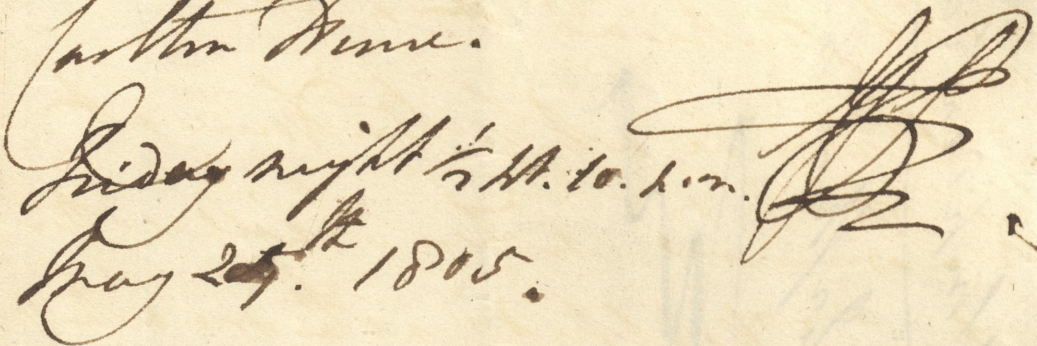 Carlton House.
Friday night 1/2 pt. 10. p.m.
May 24.th 1805.